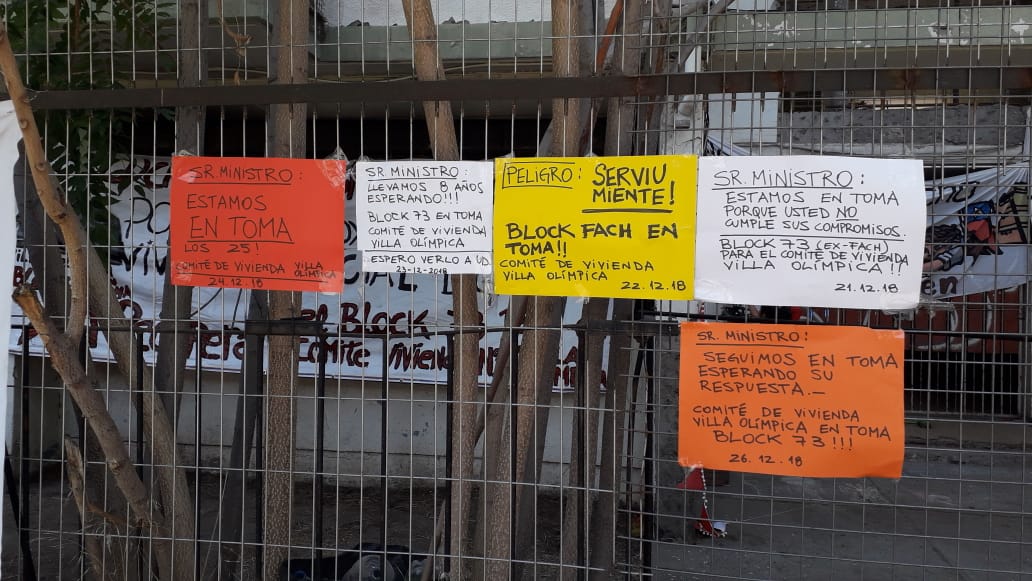 SR. MINISTRO:
ESTAMOS
EN TOMA
LOS 25!
COMITÉ DE VIVIENDA VILLA
OLÍMPICA
24.12.18
SR. MINISTRO:
LLEVAMOS 8 AÑOS
ESPERANDO!!!
BLOCK 73 EN TOMA
COMITÉ DE VIVIENDA
VILLA OLÍMPICA
ESPERO VERLO A UD.
23-12-2018
PELIGRO: SERVIU
MIENTE!
BLOCK FACH EN
TOMA!!
COMITÉ DE VIVIENDA
VILLA OLÍMPICA
22.12.18
SR. MINISTRO:
ESTAMOS EN TOMA
PORQUE USTED NO
CUMPLE SUS COMPROMISOS.
BLOCK 73 (EX-FACH)
PARA EL COMITÉ DE VIVIENDA
VILLA OLÍMPICA!!
21.12.18
SR. MINISTRO:
SEGUIMOS EN TOMA
ESPERANDO SU
RESPUESTA.-
COMITÉ DE VIVIENDA
VILLA OLÍMPICA EN TOMA
BLOCK 73!!!
26.12.18
BLOCK 73
COMITE VIVIENDA